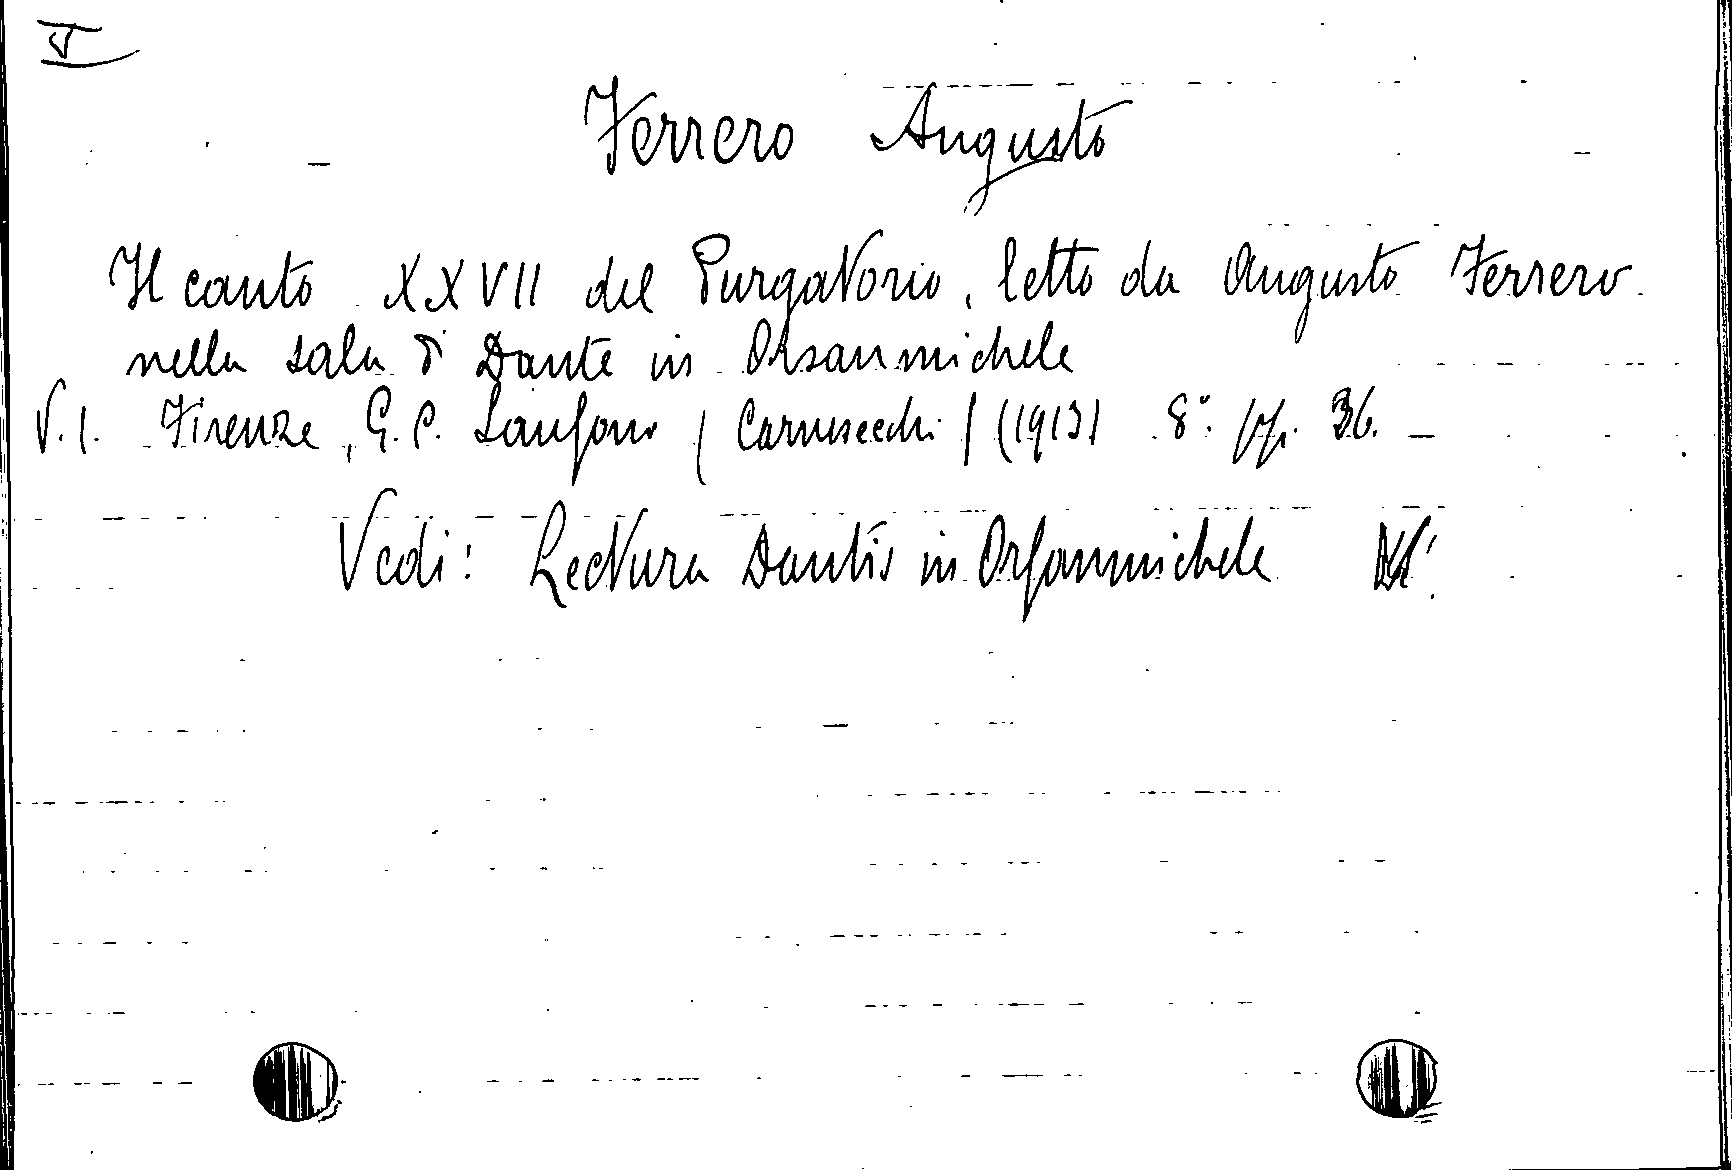 Ferrero Augusto
Il canto XXVII del Purgatorio, letto da Augusto Ferrero
nella sala di Dante in Orsanmichele
V. I. Firenze, G. C. Sansoni (Carnesecchi) (1913) 8° pp. 36. —
Vedi: Lectura Dantis in Orsanmichele